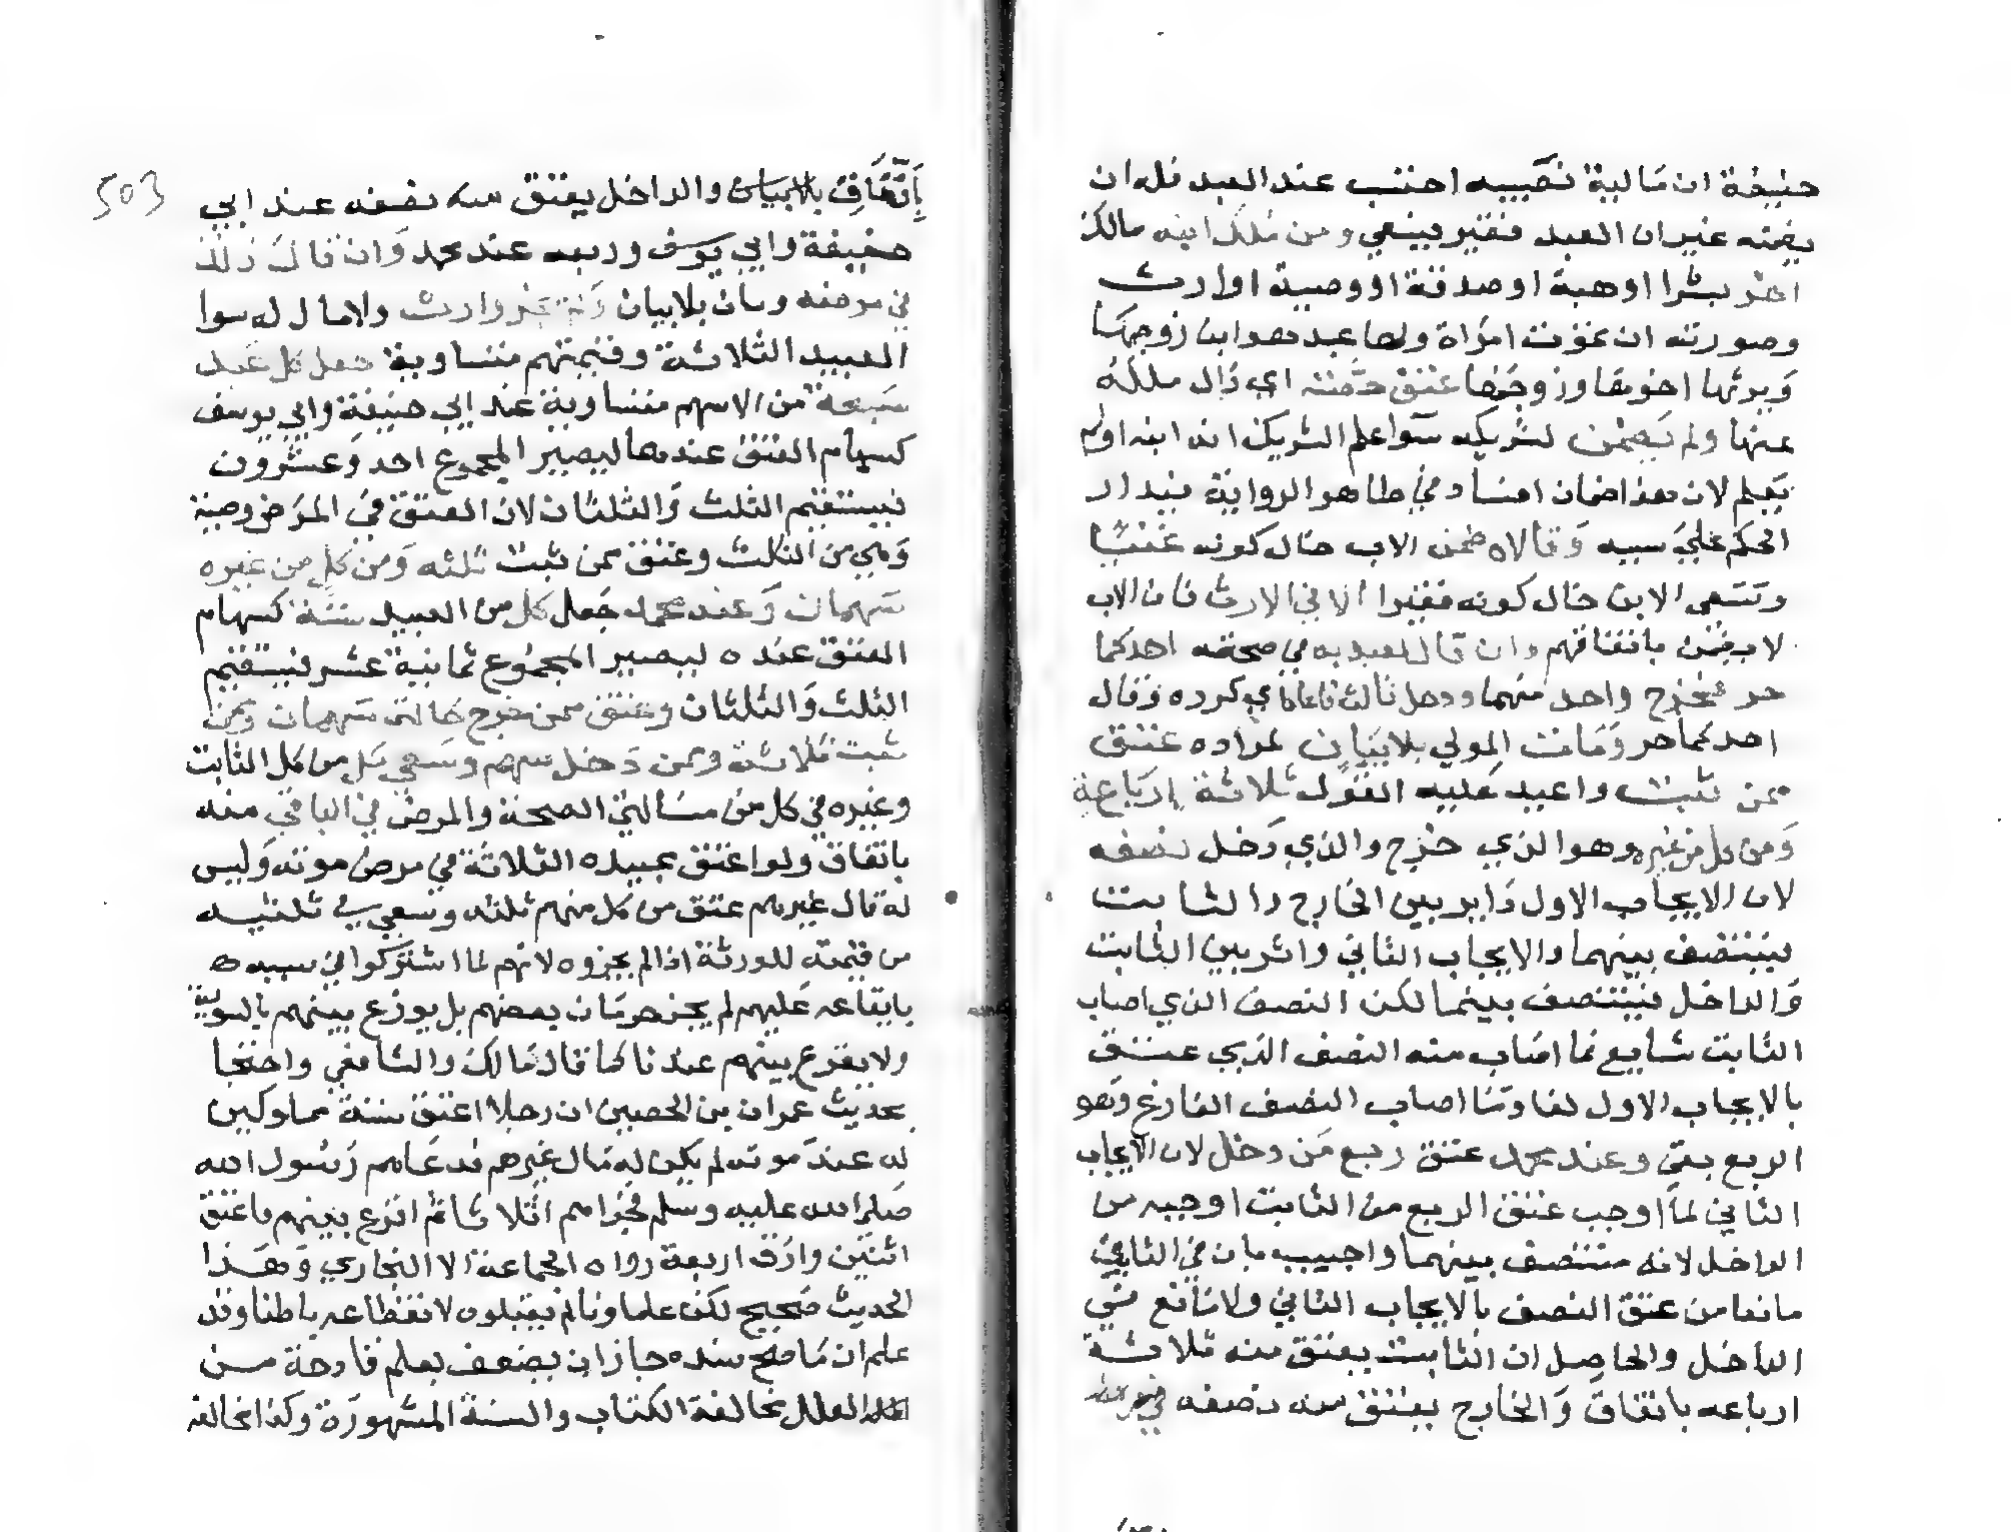 حنيفة ان مالية نصيبه احتبست عند العبد فله ان
يضمنه غير ان العبد فقير فيسعي ومن ملك ابنه مالك
اخر بشرا او هبة او صدقة او وصية او ارث
وصورته ان تموت امراة ولها عبد هو ابن زوجها
ويرثها اخوها وزوجها عتق حصته اي زال ملكه
عنها ولم يضمن لشريكه سوا علم الشريك انه ابنه او لم
يعلم لان هذا ضمان افساد في ظاهر الرواية فيدار
الحكم علي سببه وقالا ضمن الاب حال كونه غنيا
وتسعى الابن حال كونه فقيرا الا في الارث فان الاب
لا يضمن باتفاقهم وان قال لعبديه في صحته احدكما
حر فخرج واحد منهما ودخل ثالث فاعاد اي كرره وقال
احدكما حر ومات المولي بلا بيان لمراده عتق
ممن ثبت واعيد عليه القول ثلاثة ارباعه
ومن كل من غيره وهو الذي خرج والذي دخل نصفه
لان الايجاب الاول داير بين الخارج والثابت
فيتنصف بينهما والايجاب الثاني داير بين الثابت
والداخل فيتنصف بينما لكن النصف الذي اصاب
الثابت شايع فما اصاب منه النصف الذي عتق
بالايجاب الاول لغا وما اصاب النصف الفارغ وهو
الربع بقي وعند محمد عتق ربع من دخل لان الايجاب
الثاني لما اوجب عتق الربع من الثابت اوجبه من
الداخل لانه متنصف بينهما واجيب بان في الثابت
مانعا من عتق النصف بالايجاب الثاني ولا مانع في
الداخل والحاصل ان الثابت يعتق منه ثلاثة
ارباعه باتفاق والخارج يعتق منه نصفه
503
باتفاق بلا بيان والداخل يعتق منه نصفه عند ابي
حنيفة وابي يوسف وربعه عند محمد وان قال ذلك
في مرضه ومات بلا بيان ولم يجز وارث ولا مال له سوا
العبيد الثلاثة وقيمتهم متساوية جعل كل عبد
سبعة من الاسهم متساوية عند ابي حنيفة وابي يوسف
كسهام العتق عندهما ليصير المجموع احد وعشرون
فيستقيم الثلث والثلثان لان العتق في المرض وصية
وهي من الثلث وعتق ممن ثبت ثلثه ومن كل من غيره
سهمان وعند محمد جعل كل من العبيد ستة كسهام
العتق عنده ليصير المجموع ثمانية عشر فيستقيم
الثلث والثلثان وعتق ممن خرج سهمان وممن
ثبت ثلاثة وممن دخل سهم وسعي كل من كل الثابت
وغيره في كل من مسالتي الصحة والمرض في الباقي منه
باتفاق ولو اعتق عبيده الثلاثة في مرض موته وليس
له مال غيرهم عتق من كل منهم ثلثه وسعي في ثلثيه
من قيمته للورثة اذا لم يجزوه لانهم لما اشتركوا في سببه
بايقاعه عليهم لم يجز حرمان بعضهم بل يوزع بينهم بالسوية
ولا يقرع بينهم عندنا كما قال مالك والشافعي واحتجا
بحديث عمران بن الحصين ان رجلا اعتق ستة مماوكين
له عند موته لم يكن له مال غيرهم فدعاهم رسول الله
صلى الله عليه وسلم فجزاهم اثلاثا ثم اقرع بينهم فاعتق
اثنين وارق اربعة رواه الجماعة الا البخاري وهذا
الحديث صحيح لكن علماونا لم يقبلوه لانقطاعه باطنا وقد
علم ان ما صح سنده جاز ان يضعف بعلم قادحة من
العلل مخالفة الكتاب والسنة المشهورة وكذا مخالفة